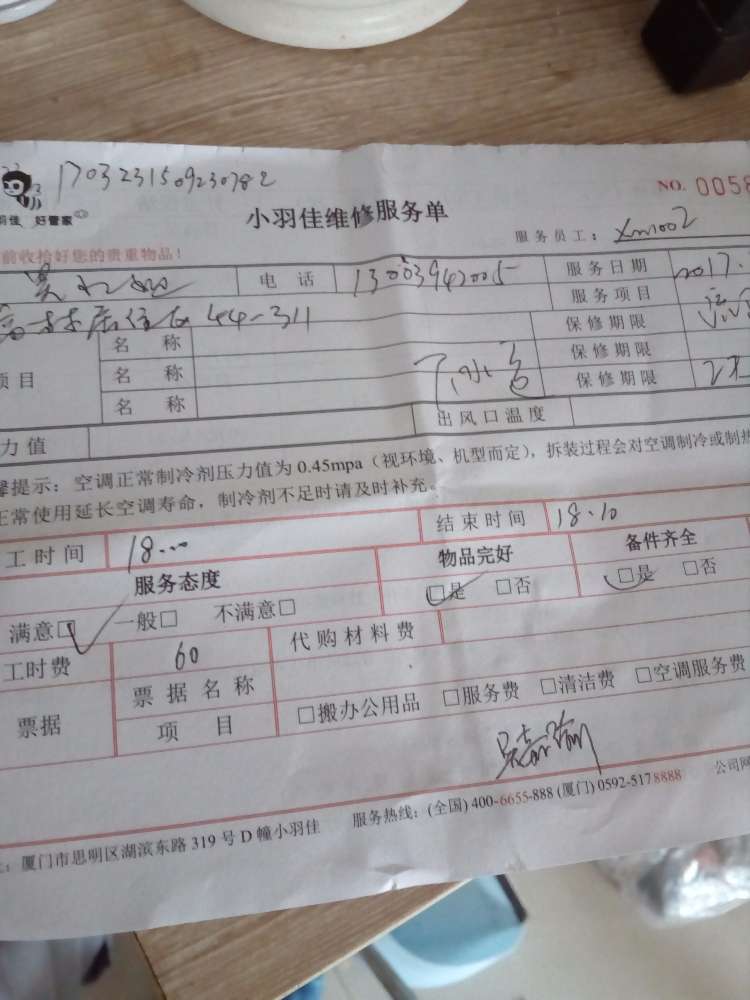 1703231509230782
NO. 0058
羽佳 好管家
小羽佳维修服务单
服务员工： Xm1002
前收拾好您的贵重物品！
电 话 13003942005 服务日期 2017.
服务项目
居住区 44-311 保修期限
项目 名 称 保修期限
名 称 下水管 保修期限
名 称
力值 出风口温度
馨提示：空调正常制冷剂压力值为 0.45mpa（视环境、机型而定），拆装过程会对空调制冷或制热
正常使用延长空调寿命，制冷剂不足时请及时补充。
工时间 18... 结束时间 18.10
服务态度 物品完好 备件齐全
满意□ 一般□ 不满意□ □是 □否 □是 □否
工时费 60 代购材料费
票据 票据名称
项 目 □搬办公用品 □服务费 □清洁费 □空调服务费
：厦门市思明区湖滨东路 319 号 D 幢小羽佳 服务热线：(全国) 400-6655-888 (厦门) 0592-5178888 公司网